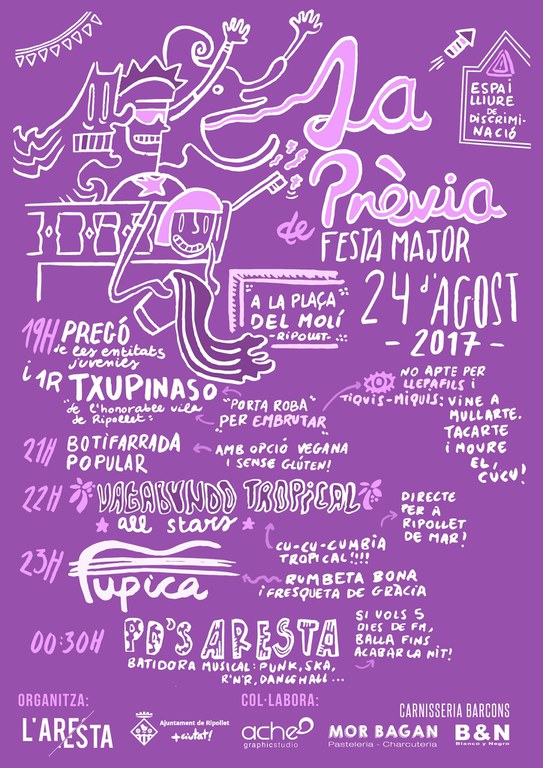 La
Prèvia
de FESTA MAJOR
24 d'AGOST
- 2017 -
ESPAI
LLIURE
DE
DISCRIMI-
NACIÓ
A LA PLAÇA
DEL MOLÍ
- RIPOLLET -
19H PREGÓ
de les entitats
juvenils
i 1R TXUPINASO
de l'honorable vila
de Ripollet:
"PORTA ROBA"
PER EMBRUTAR
NO APTE PER
LLEPAFILS I
TIQUIS-MIQUIS: VINE A
MULLARTE,
TACARTE
I MOURE
EL
CUCU!
21H BOTIFARRADA
POPULAR
AMB OPCIÓ VEGANA
I SENSE GLÚTEN!
22H VAGABUNDO TROPICAL
all stars
CU-CU-CUMBIA
TROPICAL!!!!
DIRECTE
PER A
RIPOLLET
DE MAR!
23H Fupica
RUMBETA BONA
i FRESQUETA DE GRÀCIA
00:30H PD'S ARESTA
BATIDORA MUSICAL: PUNK, SKA,
R'N'R, DANCEHALL...
SI VOLS 5
DIES DE FM,
BALLA FINS
ACABAR LA NIT!
ORGANITZA:
L'ARESTA
Ajuntament de Ripollet
+ciutat!
COL·LABORA:
ache
graphicstudio
MOR BAGAN
Pasteleria - Charcuteria
CARNISSERIA BARCONS
B&N
Blanco y Negro